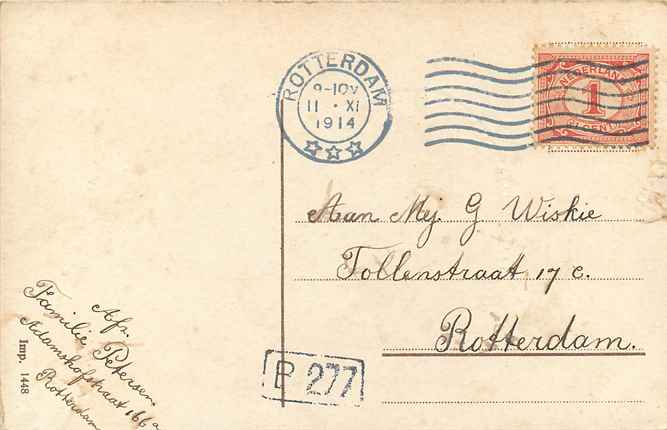 ROTTERDAM
9-10V
11 · XI
1914
NEDERLAND
1
CENT
Aan Mej. G Wiskie
Tollenstraat 17 c.
Rotterdam.
Afz.
Familie Petersen.
Adamshofstraat 166a
Rotterdam
Imp. 1448
B 277